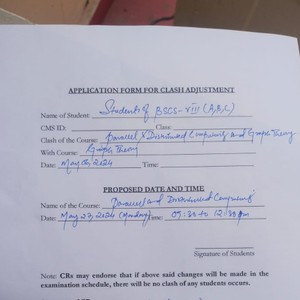 APPLICATION FORM FOR CLASH ADJUSTMENT
Name of Student: Students of BSCS-VIII (A,B,C)
CMS ID: Class:
Clash of the Course: Parallel & Distributed Computing and Graph Theory
With Course: Graph Theory
Date: May 2024 Time:
PROPOSED DATE AND TIME
Name of the Course: Parallel and Distributed Computing
Date: May 27, 2024 (Monday) Time: 09:30 to 12:30 pm
Signature of Students
Note: CRs may endorse that if above said changes will be made in the
examination schedule, there will be no clash of any students occurs.